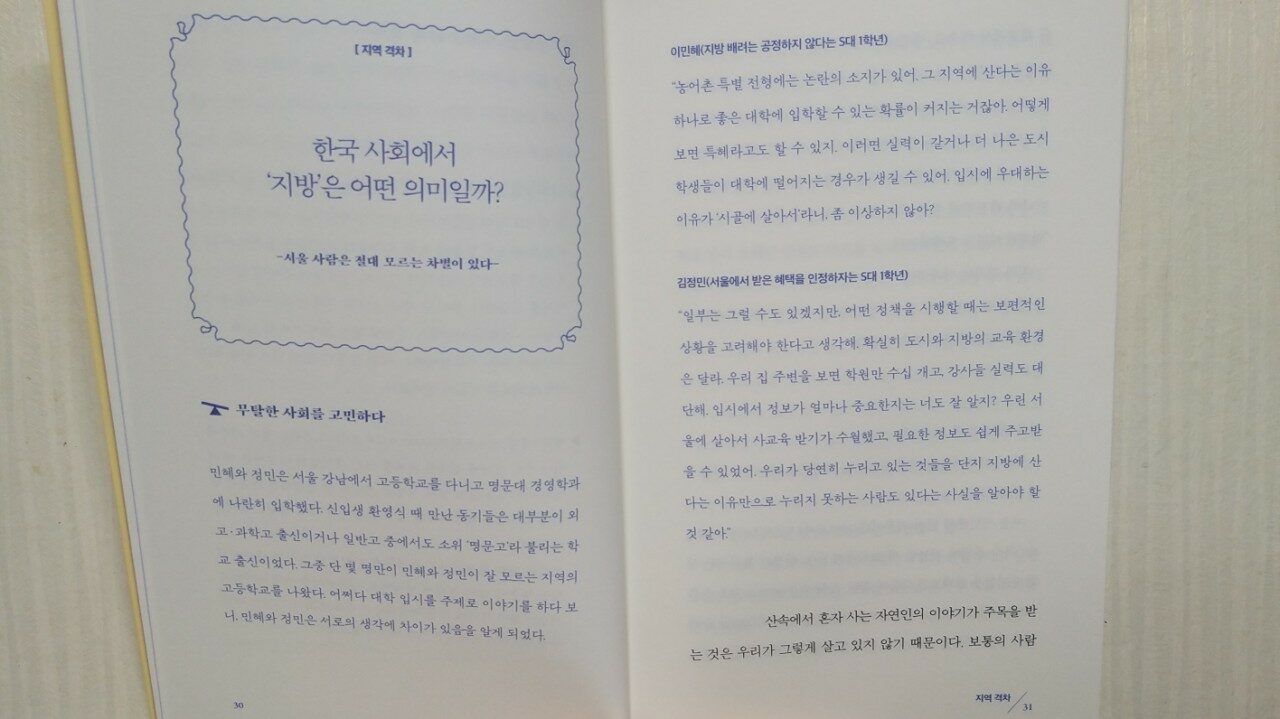 [ 지역 격차 ]
한국 사회에서
‘지방’은 어떤 의미일까?
-서울 사람은 절대 모르는 차별이 있다-
무탈한 사회를 고민하다
민혜와 정민은 서울 강남에서 고등학교를 다니고 명문대 경영학과
에 나란히 입학했다. 신입생 환영식 때 만난 동기들은 대부분이 외
고·과학고 출신이거나 일반고 중에서도 소위 ‘명문고’라 불리는 학
교 출신이었다. 그중 단 몇 명만이 민혜와 정민이 잘 모르는 지역의
고등학교를 나왔다. 어쩌다 대학 입시를 주제로 이야기를 하다 보
니, 민혜와 정민은 서로의 생각에 차이가 있음을 알게 되었다.
30
이민혜(지방 배려는 공정하지 않다는 S대 1학년)
“농어촌 특별 전형에는 논란의 소지가 있어. 그 지역에 산다는 이유
하나로 좋은 대학에 입학할 수 있는 확률이 커지는 거잖아. 어떻게
보면 특혜라고도 할 수 있지. 이러면 실력이 같거나 더 나은 도시
학생들이 대학에 떨어지는 경우가 생길 수 있어. 입시에 우대하는
이유가 ‘시골에 살아서’라니, 좀 이상하지 않아?
김정민(서울에서 받은 혜택을 인정하자는 S대 1학년)
“일부는 그럴 수도 있겠지만, 어떤 정책을 시행할 때는 보편적인
상황을 고려해야 한다고 생각해. 확실히 도시와 지방의 교육 환경
은 달라. 우리 집 주변을 보면 학원만 수십 개고, 강사들 실력도 대
단해. 입시에서 정보가 얼마나 중요한지는 너도 잘 알지? 우린 서
울에 살아서 사교육 받기가 수월했고, 필요한 정보도 쉽게 주고받
을 수 있었어. 우리가 당연히 누리고 있는 것들을 단지 지방에 산
다는 이유만으로 누리지 못하는 사람도 있다는 사실을 알아야 할
것 같아.”
산속에서 혼자 사는 자연인의 이야기가 주목을 받
는 것은 우리가 그렇게 살고 있지 않기 때문이다. 보통의 사람
지역 격차 31